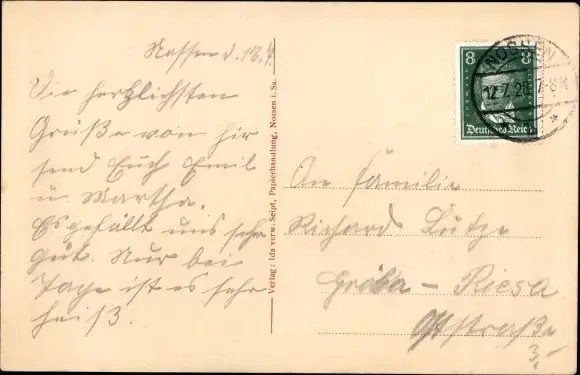 Nossen d. 12.7.
Die herzlichsten
Grüße von hir
send Euch Emil
u. Martha.
Es gefällt uns sehr
gut. Nur bei
Tage ist es sehr
heiß.
Verlag: Ida verw. Seipt, Papierhandlung, Nossen i. Sa.
8 8
Deutsches Reich
NOSSEN
12.7.28 7-8 N
An Familie
Richard Lütze
Gröba - Riesa
Oststraße
3,-